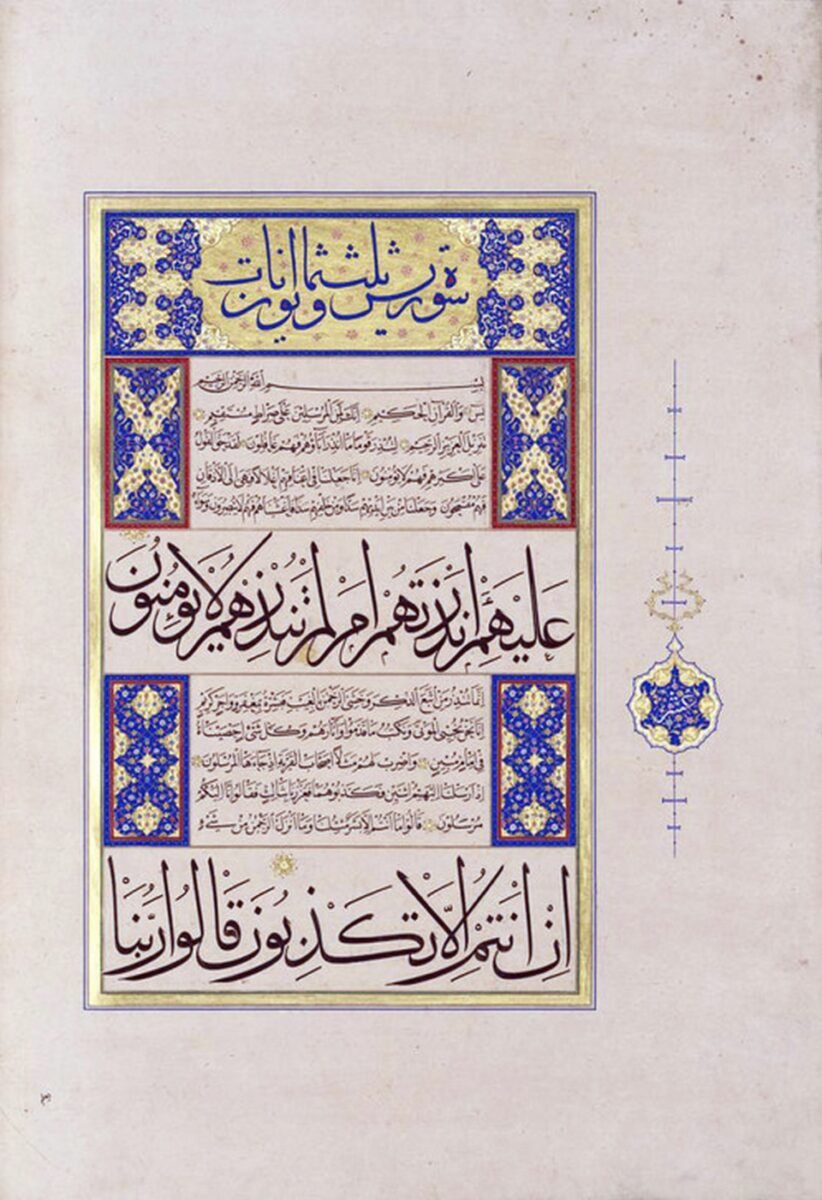 سورة يس ثلث وثمانون ايات
بسم الله الرحمن الرحيم
يس والقران الحكيم انك لمن المرسلين على صراط مستقيم
تنزيل العزيز الرحيم لتنذر قوما ما انذر اباؤهم فهم غافلون لقد حق القول
على اكثرهم فهم لا يؤمنون انا جعلنا في اعناقهم اغلالا فهي الى الاذقان
فهم مقمحون وجعلنا من بين ايديهم سدا ومن خلفهم سدا فاغشيناهم فهم لا يبصرون وسواء
عليهم ءانذرتهم ام لم تنذرهم لا يؤمنون
انما تنذر من اتبع الذكر وخشي الرحمن بالغيب فبشره بمغفرة واجر كريم
انا نحن نحيي الموتى ونكتب ما قدموا واثارهم وكل شئ احصيناه
في امام مبين واضرب لهم مثلا اصحاب القرية اذ جاءها المرسلون
اذ ارسلنا اليهم اثنين فكذبوهما فعززنا بثالث فقالوا انا اليكم
مرسلون قالوا ما انتم الا بشر مثلنا وما انزل الرحمن من شيء
ان انتم الا تكذبون قالوا ربنا
عشر